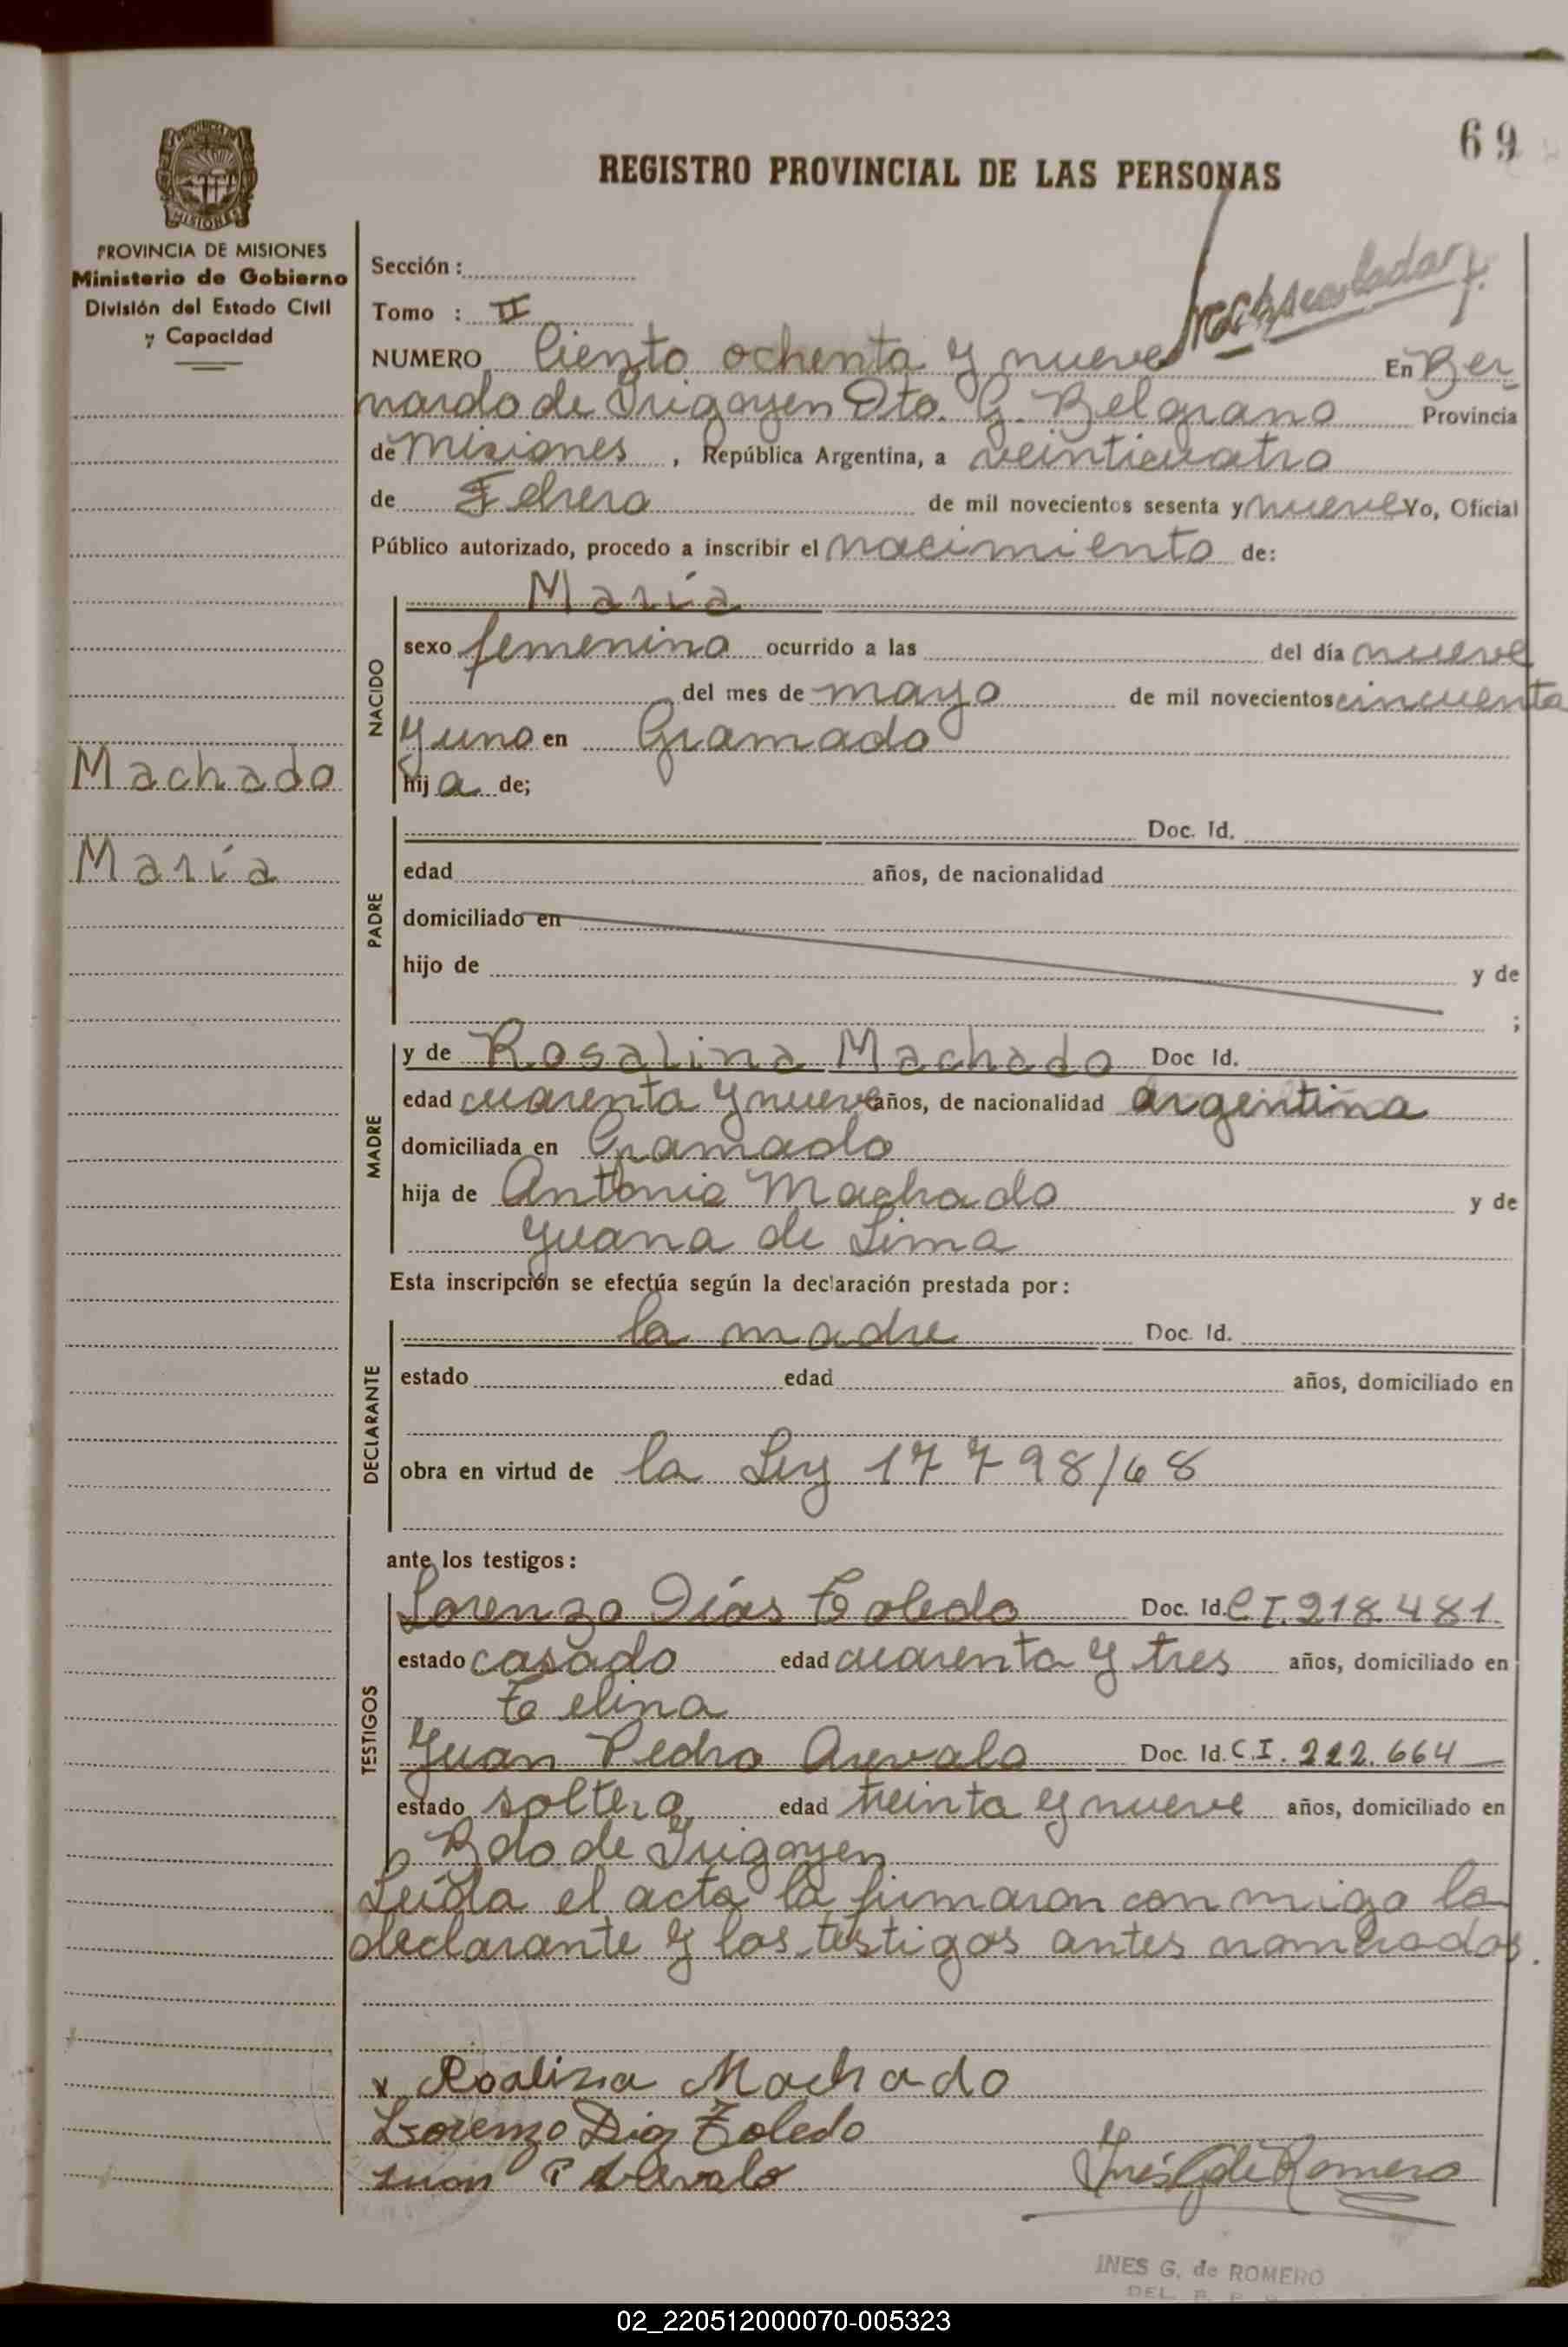 69
REGISTRO PROVINCIAL DE LAS PERSONAS
PROVINCIA DE MISIONES
Ministerio de Gobierno
División del Estado Civil
y Capacidad
Sección :
Tomo : II
NUMERO Ciento ochenta y nueve En Ber-
nardo de Irigoyen Dto. G. Belgrano Provincia
de Misiones , República Argentina, a veinticuatro
de Febrero de mil novecientos sesenta y nueve Yo, Oficial
Público autorizado, procedo a inscribir el nacimiento de:
María
NACIDO
sexo femenino ocurrido a las del día nueve
del mes de mayo de mil novecientos cincuenta
y uno en Gramado
Machado
hija de;
María
PADRE
Doc. Id.
edad años, de nacionalidad
domiciliado en
hijo de y de
;
MADRE
y de Rosalina Machado Doc Id.
edad cuarenta y nueve años, de nacionalidad argentina
domiciliada en Gramado
hija de Antonio Machado y de
Juana de Lima
Esta inscripción se efectúa según la declaración prestada por:
DECLARANTE
la madre Doc. Id.
estado edad años, domiciliado en
obra en virtud de la Ley 17798/68
ante los testigos:
TESTIGOS
Lorenzo Días Toledo Doc. Id. C I. 218.481
estado casado edad cuarenta y tres años, domiciliado en
Telina
Juan Pedro Arevalo Doc. Id. C.I. 222.664
estado soltero edad treinta y nueve años, domiciliado en
Bdo de Irigoyen
Leída el acta la firmaron conmigo la
declarante y los testigos antes nombrados.
x Roalina Machado
Lorenzo Diaz Toledo
Juan P Arevalo
Inés G de Romero
INES G. de ROMERO
DEL.
02_220512000070-005323